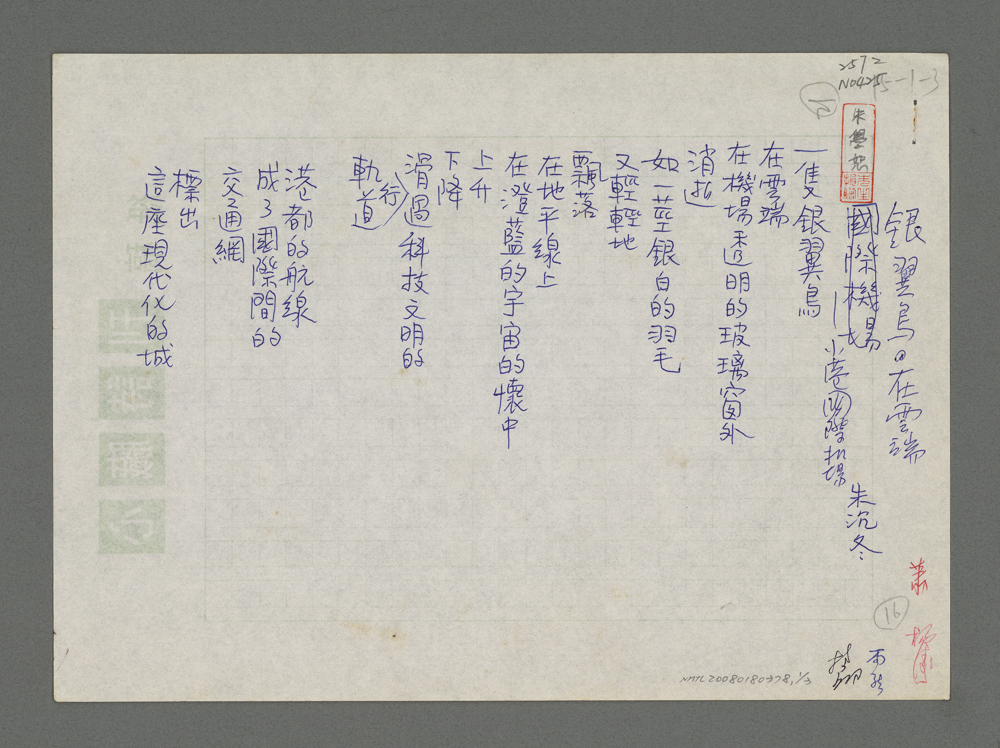 2572
N0425
5-1-3
朱學恕
銀翼鳥在雲端
國際機場
小港國際机場
朱沉冬
一隻銀翼鳥
在雲端
在機場透明的玻璃窗外
消逝
如一莖銀白的羽毛
又輕輕地
飄落
在地平線上
在澄藍的宇宙的懷中
上升
下降
滑過科技文明的
行
軌道
港都的航線
成了國際間的
交通網
標出
這座現代化的城
16
NMTL20080180378, 1/3